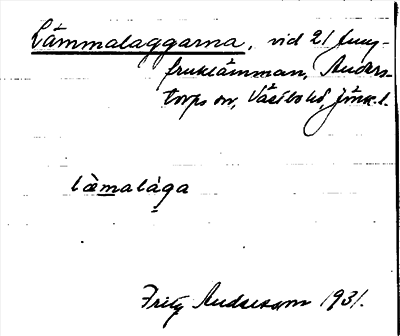 Lämmalaggarna, vid 21 Jung-
fruklämman, Anders-
torps sn, Västbo hd, Jönk. l.
læmalága
Fritz Andersson 1931.